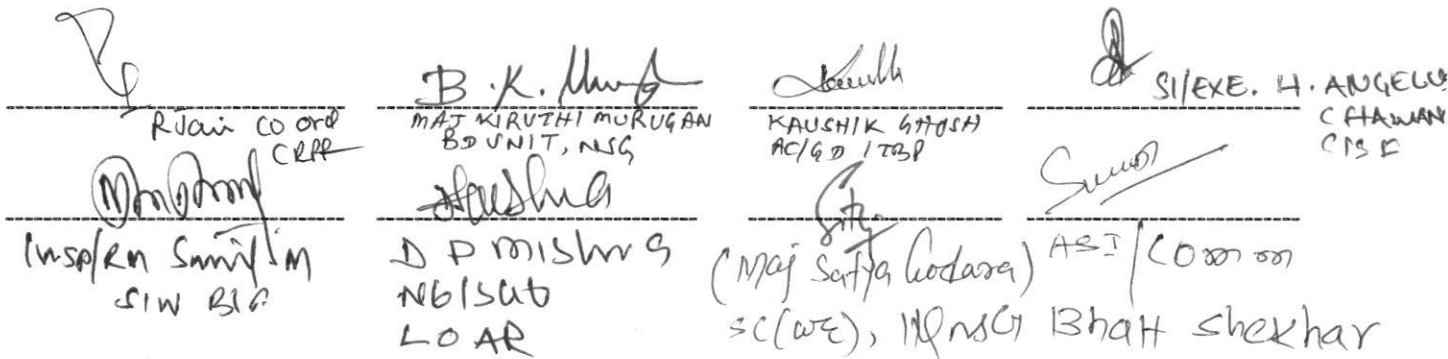 B. K.
RJain co ord
CRPF
MAJ KIRUTHI MURUGAN
BD UNIT, NSG
KAUSHIK GHOSH
AC/GD ITBP
SI/EXE. H. ANGELUS
CHAWAN
CISF
Insp/RM Sunil M
SIW BSF
D P Mishra
Nb/Sub
(Maj Satya Godara)
SC(WE), HQ NSG
ASI/Comm
Bhatt Shekhar